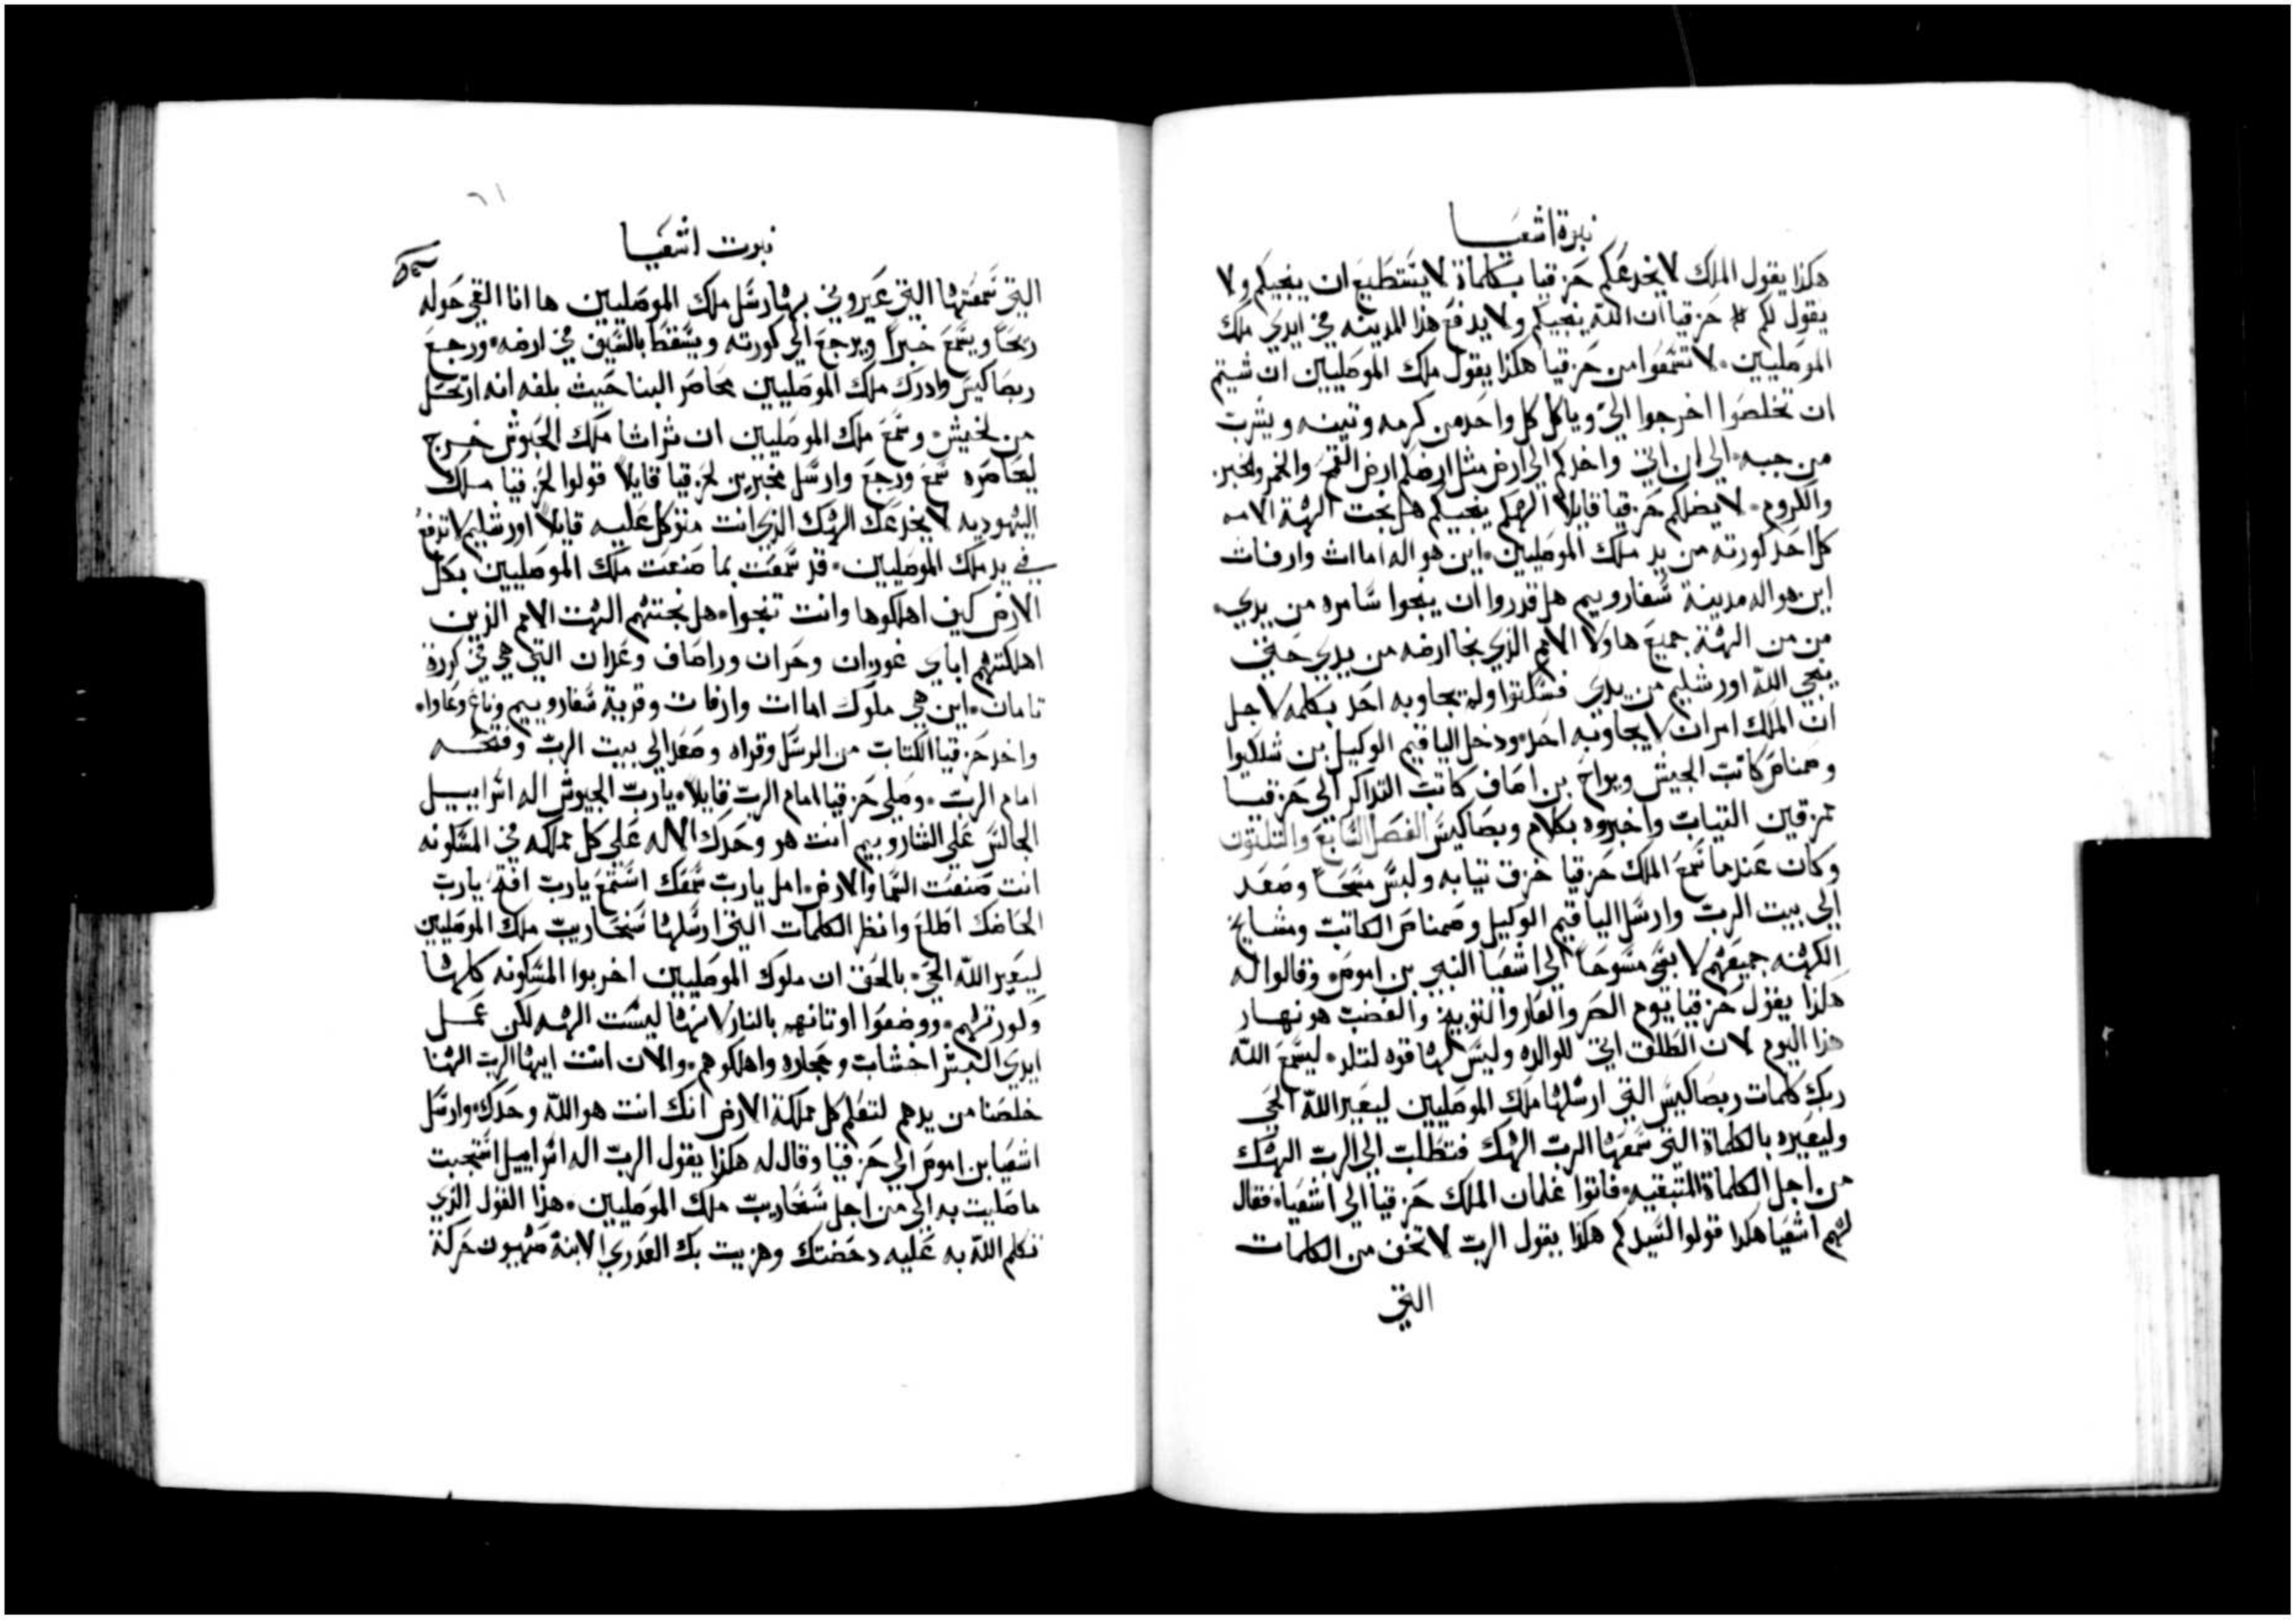 نبوة اشعيا
هكذا يقول الملك لا يخدعكم حزقيا بكلماة لا يستطيع ان ينجيكم ولا
يقول لكم حزقيا ان الله ينجيكم ولا يدفع هذا المدينه في ايدي ملك
الموصليين. لا تسمعوا من حزقيا هكذا يقول ملك الموصليين ان شيتم
ان تخلصوا اخرجوا الي وياكل كل واحد من كرمه وتينه ويشرب
من جبه. الي ان اتي واخدكم الي ارض مثل ارضكم ارض القمح والخمر والخبز
والكروم. لا يضلكم حزقيا قايلا الهكم ينجيكم هل نجت الهة الامم
كل احد كورته من يد ملك الموصليين. اين هو اله اماات وارفات
اين هو اله مدينة سفارويم هل قدروا ان ينجوا سامره من يدي.
من من الهة جميع هاولا الامم الذي نجا ارضه من يدي حتي
ينجي الله اورشليم من يدي فسكتوا ولم يجاوبه احد بكلمه لاجل
ان الملك امر ان لا يجاوبه احد. ودخل الياقيم الوكيل بن شلكيوا
وصمناص كاتب الجيش ويواخ بن اصاف كاتب التداكر الي حزقيا
ممزقين التياب واخبروه بكلام وبصاكيس الفصل السابع والتلتون
وكان عندما سمع الملك حزقيا خزق تيابه ولبس مسحا وصعد
الي بيت الرب وارسل الياقيم الوكيل وصمناص الكاتب ومشايخ
الكهنه جميعهم لابسي مسوحا الي اشعيا النبي بن اموص. وقالوا له
هكذا يقول حزقيا يوم الحصر والعار والتوبيخ والغضب هو نهار
هذا اليوم لان الطلق اتي للوالده وليس لها قوه لتلد. ليسمع الله
ربك كلمات ربصاكيس التي ارسلها ملك الموصليين ليعير الله الحي
وليعيره بالكلماة التي سمعها الرب الهك فتطلب الي الرب الهك
من اجل الكلماة المتبقيه. فاتوا غلمان الملك حزقيا الي اشعيا. فقال
لهم اشعيا هكذا قولوا لسيدكم هكذا يقول الرب لا تخف من الكلمات
التي
نبوت اشعيا
التي سمعتها التي عيروني بها رسل ملك الموصليين ها انا القي حوله
ريحا ويسمع خبرا ويرجع الي كورته ويسقط بالسيف في ارضه. ورجع
ربصاكيس وادرك ملك الموصليين محاصر البنا حيث بلغه انه ارتحل
من لخيش. وسمع ملك الموصليين ان ثراثا ملك الحبوش خرج
ليحاصره سمع ورجع وارسل مخبرين لحزقيا قايلا قولوا لحزقيا ملك
اليهوديه لا يخدعك الهك الذي انت متوكل عليه قايلا اورشليم لا تدفع
في يد ملك الموصليين. قد سمعت بما صنعت ملك الموصليين بكل
الارض كيف اهلكوها وانت تنجوا. هل نجتهم الهت الامم الذين
اهلكتهم اباي غوزان وحران وراصاف وعدان التي هي في كورة
تامان. اين هي ملوك اماات وارفات وقرية سفارويم وناغ وعاوا.
واخد حزقيا الكتاب من الرسل وقراه وصعد الي بيت الرب وفتحه
امام الرب. وصلي حزقيا امام الرب قايلا. يا رب الجيوش اله اسراييل
الجالس علي الشاروبيم انت هو وحدك الاله علي كل مملكه في المسكونه
انت صنعت السما والارض. امل يارب سمعك استمع يارب افتح يارب
الحاضك اطلع وانظر الكلمات التي ارسلها سنحاريب ملك الموصليين
ليعير الله الحي. بالحق ان ملوك الموصليين اخربوا المسكونه كلها
وكورتهم. ووضعوا اوتانهم بالنار لانها ليست الهه لكن عمل
ايدي البشر اخشاب وحجاره واهلكوهم. والان انت ايها الرب الهنا
خلصنا من يدهم لتعلم كل مملكة الارض انك انت هو الله وحدك. وارسل
اشعيا بن اموص الي حزقيا وقال له هكذا يقول الرب اله اسراييل استجبت
ما صليت به الي من اجل سنحاريب ملك الموصليين. هذا القول الذي
تكلم الله به عليه دحضتك وهزيت بك العدري الابنة صهيون حركة